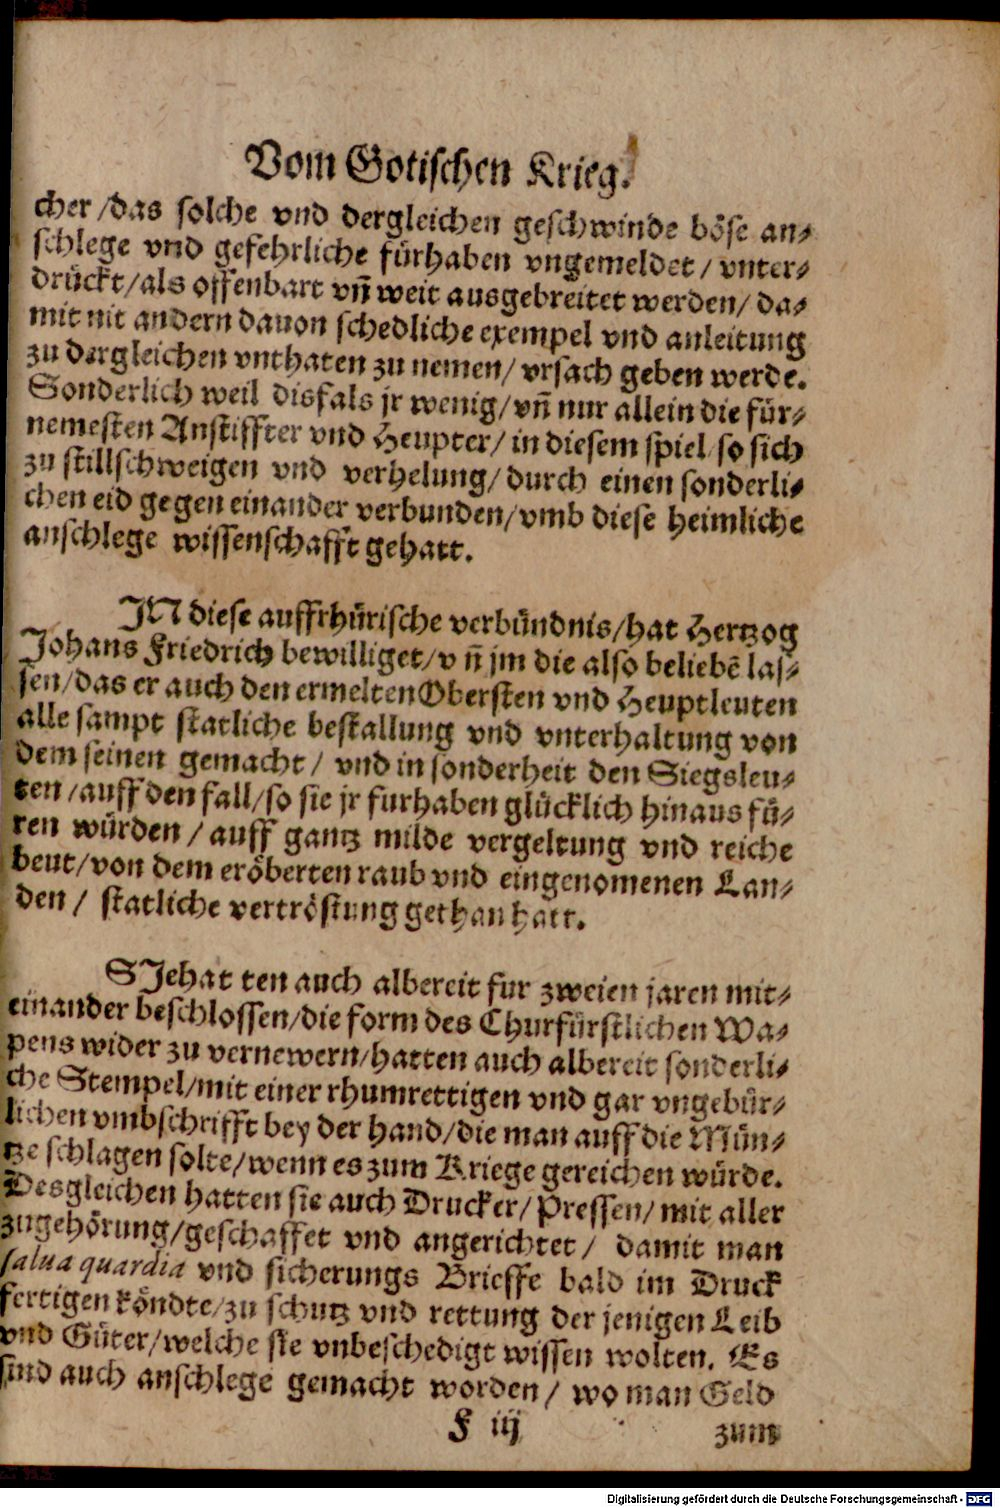 Vom Gotischen Krieg.
cher/das solche vnd dergleichen geschwinde böse an-
schlege vnd gefehrliche fürhaben vngemeldet/vnter-
drückt/als offenbart vñ weit ausgebreitet werden/da-
mit nit andern dauon schedliche exempel vnd anleitung
zu dergleichen vnthaten zu nemen/vrsach geben werde.
Sonderlich weil disfals jr wenig/vñ nur allein die für-
nemesten Anstiffter vnd Heupter/in diesem spiel/so sich
zu stillschweigen vnd verhelung/durch einen sonderli-
chen eid gegen einander verbunden/vmb diese heimliche
anschlege wissenschafft gehatt.
JN diese auffrhürische verbündnis/hat Hertzog
Johans Friedrich bewilliget/vñ jm die also beliebẽ las-
sen/das er auch den ermelten Obersten vnd Heuptleuten
alle sampt statliche bestallung vnd vnterhaltung von
dem seinen gemacht/vnd in sonderheit den Siegsleu-
ten/auff den fall/so sie jr furhaben glücklich hinaus fü-
ren würden/auff gantz milde vergeltung vnd reiche
beut/von dem eröberten raub vnd eingenomenen Lan-
den/statliche vertröstung gethan hatt.
SJe hatten auch albereit fur zweien jaren mit-
einander beschlossen/die form des Churfürstlichen Wa-
pens wider zu vernewern/hatten auch albereit sonderli-
che Stempel/mit einer rhumrettigen vnd gar vngebür-
lichen vmbschrifft bey der hand/die man auff die Mün-
tze schlagen solte/wenn es zum Kriege gereichen würde.
Desgleichen hatten sie auch Drucker/Pressen/mit aller
zugehörung/geschaffet vnd angerichtet/damit man
salua quardia vnd sicherungs Brieffe bald im Druck
fertigen köndte/zu schutz vnd rettung der jenigen Leib
vnd Güter/welche sie vnbeschedigt wissen wolten. Es
sind auch anschlege gemacht worden/wo man Geld
F iij
zum
Digitalisierung gefördert durch die Deutsche Forschungsgemeinschaft - DFG